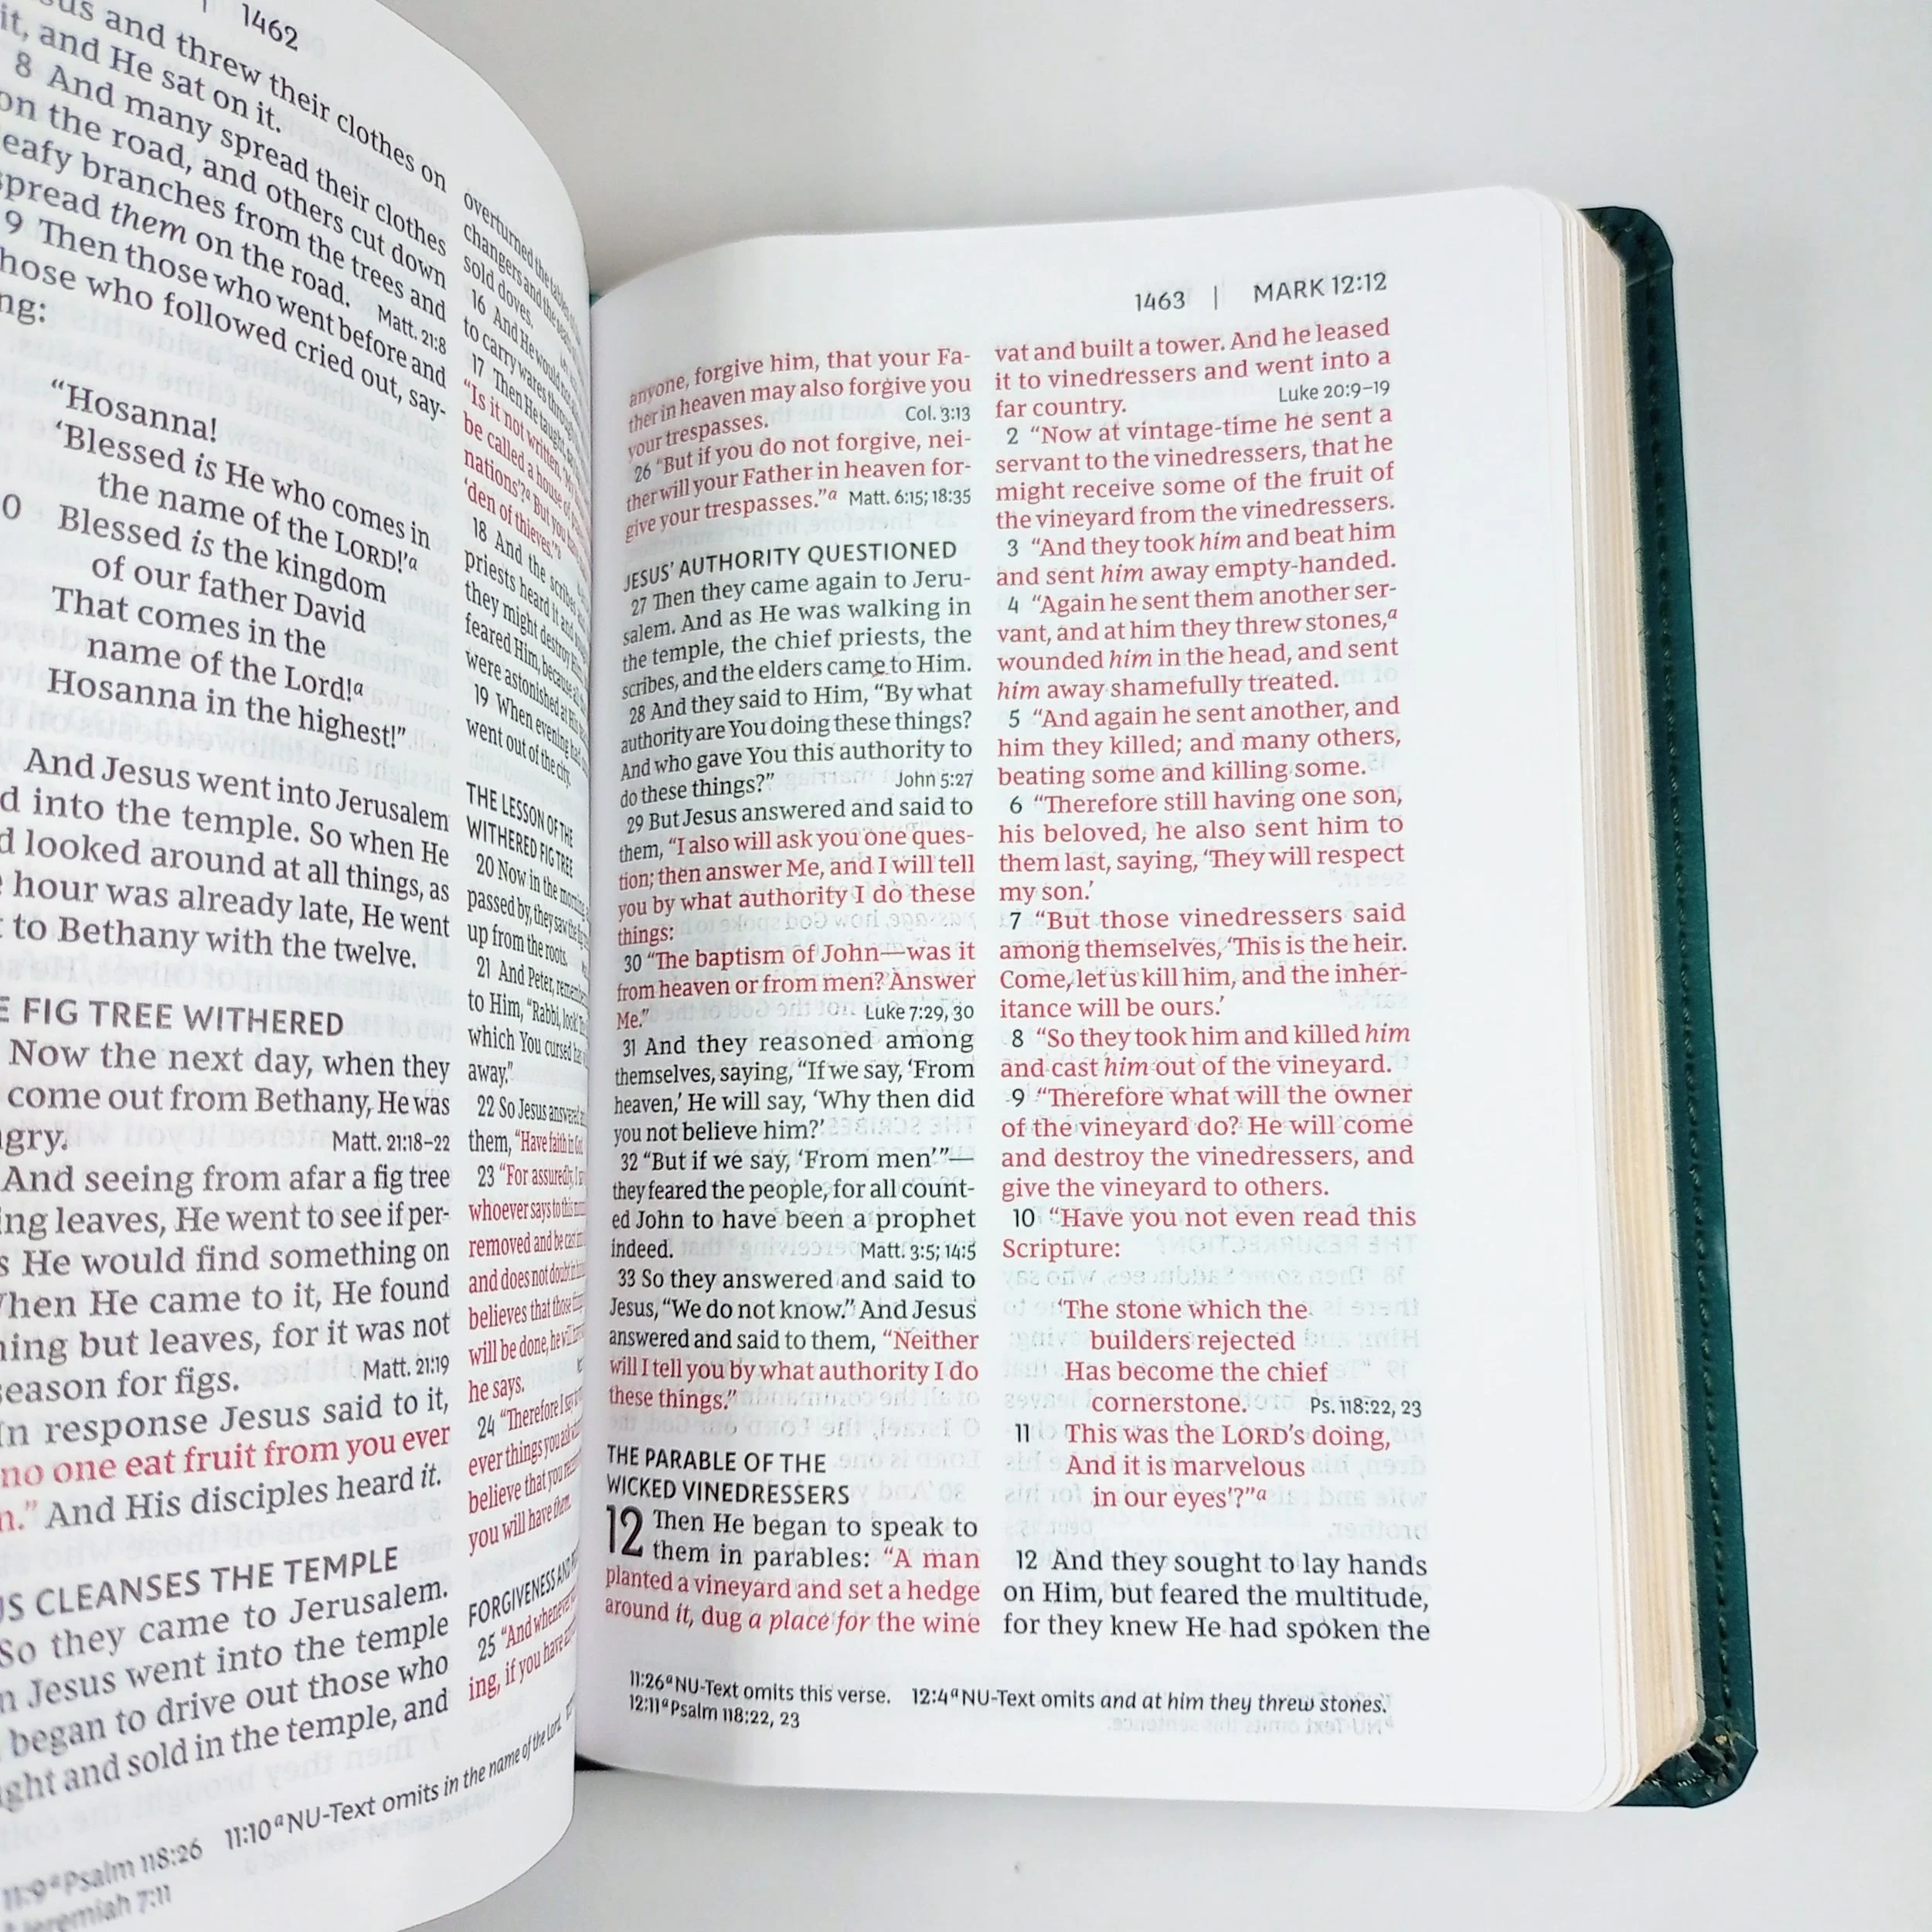 1462
and threw their clothes on
it, and He sat on it.
8 And many spread their clothes
on the road, and others cut down
branches from the trees and
spread them on the road. Matt. 21:8
9 Then those who went before and
those who followed cried out, say-
“Hosanna!
‘Blessed is He who comes in
the name of the LORD!’a
Blessed is the kingdom
of our father David
That comes in the
name of the Lord!a
Hosanna in the highest!”
And Jesus went into Jerusalem
into the temple. So when He
looked around at all things, as
hour was already late, He went
to Bethany with the twelve.
FIG TREE WITHERED
Now the next day, when they
come out from Bethany, He was
Matt. 21:18–22
And seeing from afar a fig tree
leaves, He went to see if per-
He would find something on
When He came to it, He found
but leaves, for it was not
season for figs. Matt. 21:19
In response Jesus said to it,
no one eat fruit from you ever
And His disciples heard it.
CLEANSES THE TEMPLE
So they came to Jerusalem.
Jesus went into the temple
began to drive out those who
and sold in the temple, and
overturned the
changers and the
sold doves.
16 And He would
to carry wares
17 Then He taught,
“Is it not written,
be called a house of
nations’?a But you
‘den of thieves.’”
18 And the scribes
priests heard it and
they might destroy Him;
feared Him, because
were astonished at
19 When evening
went out of the city.
THE LESSON OF THE
WITHERED FIG TREE
20 Now in the morning
passed by, they saw the
up from the roots.
21 And Peter,
to Him, “Rabbi, look!
which You cursed
away.”
22 So Jesus answered
them, “Have faith in God.
23 “For assuredly, I
whoever says to this
removed and be cast
and does not doubt
believes that those
will be done, he will
he says.
24 “Therefore I say
ever things you ask
believe that you
you will have them.
FORGIVENESS AND
25 “And whenever
ing, if you have
11:9 a Psalm 118:26 11:10 a NU-Text omits in the name of the Lord.
Jeremiah 7:11
1463 | MARK 12:12
anyone, forgive him, that your Fa-
ther in heaven may also forgive you
your trespasses. Col. 3:13
26 “But if you do not forgive, nei-
ther will your Father in heaven for-
give your trespasses.”a Matt. 6:15; 18:35
JESUS’ AUTHORITY QUESTIONED
27 Then they came again to Jeru-
salem. And as He was walking in
the temple, the chief priests, the
scribes, and the elders came to Him.
28 And they said to Him, “By what
authority are You doing these things?
And who gave You this authority to
do these things?” John 5:27
29 But Jesus answered and said to
them, “I also will ask you one ques-
tion; then answer Me, and I will tell
you by what authority I do these
things:
30 “The baptism of John—was it
from heaven or from men? Answer
Me.” Luke 7:29, 30
31 And they reasoned among
themselves, saying, “If we say, ‘From
heaven,’ He will say, ‘Why then did
you not believe him?’
32 “But if we say, ‘From men’”—
they feared the people, for all count-
ed John to have been a prophet
indeed. Matt. 3:5; 14:5
33 So they answered and said to
Jesus, “We do not know.” And Jesus
answered and said to them, “Neither
will I tell you by what authority I do
these things.”
THE PARABLE OF THE
WICKED VINEDRESSERS
12 Then He began to speak to
them in parables: “A man
planted a vineyard and set a hedge
around it, dug a place for the wine
vat and built a tower. And he leased
it to vinedressers and went into a
far country. Luke 20:9–19
2 “Now at vintage-time he sent a
servant to the vinedressers, that he
might receive some of the fruit of
the vineyard from the vinedressers.
3 “And they took him and beat him
and sent him away empty-handed.
4 “Again he sent them another ser-
vant, and at him they threw stones,a
wounded him in the head, and sent
him away shamefully treated.
5 “And again he sent another, and
him they killed; and many others,
beating some and killing some.
6 “Therefore still having one son,
his beloved, he also sent him to
them last, saying, ‘They will respect
my son.’
7 “But those vinedressers said
among themselves, ‘This is the heir.
Come, let us kill him, and the inher-
itance will be ours.’
8 “So they took him and killed him
and cast him out of the vineyard.
9 “Therefore what will the owner
of the vineyard do? He will come
and destroy the vinedressers, and
give the vineyard to others.
10 “Have you not even read this
Scripture:
‘The stone which the
builders rejected
Has become the chief
cornerstone. Ps. 118:22, 23
11 This was the LORD’s doing,
And it is marvelous
in our eyes’?”a
12 And they sought to lay hands
on Him, but feared the multitude,
for they knew He had spoken the
11:26 a NU-Text omits this verse. 12:4 a NU-Text omits and at him they threw stones.
12:11 a Psalm 118:22, 23